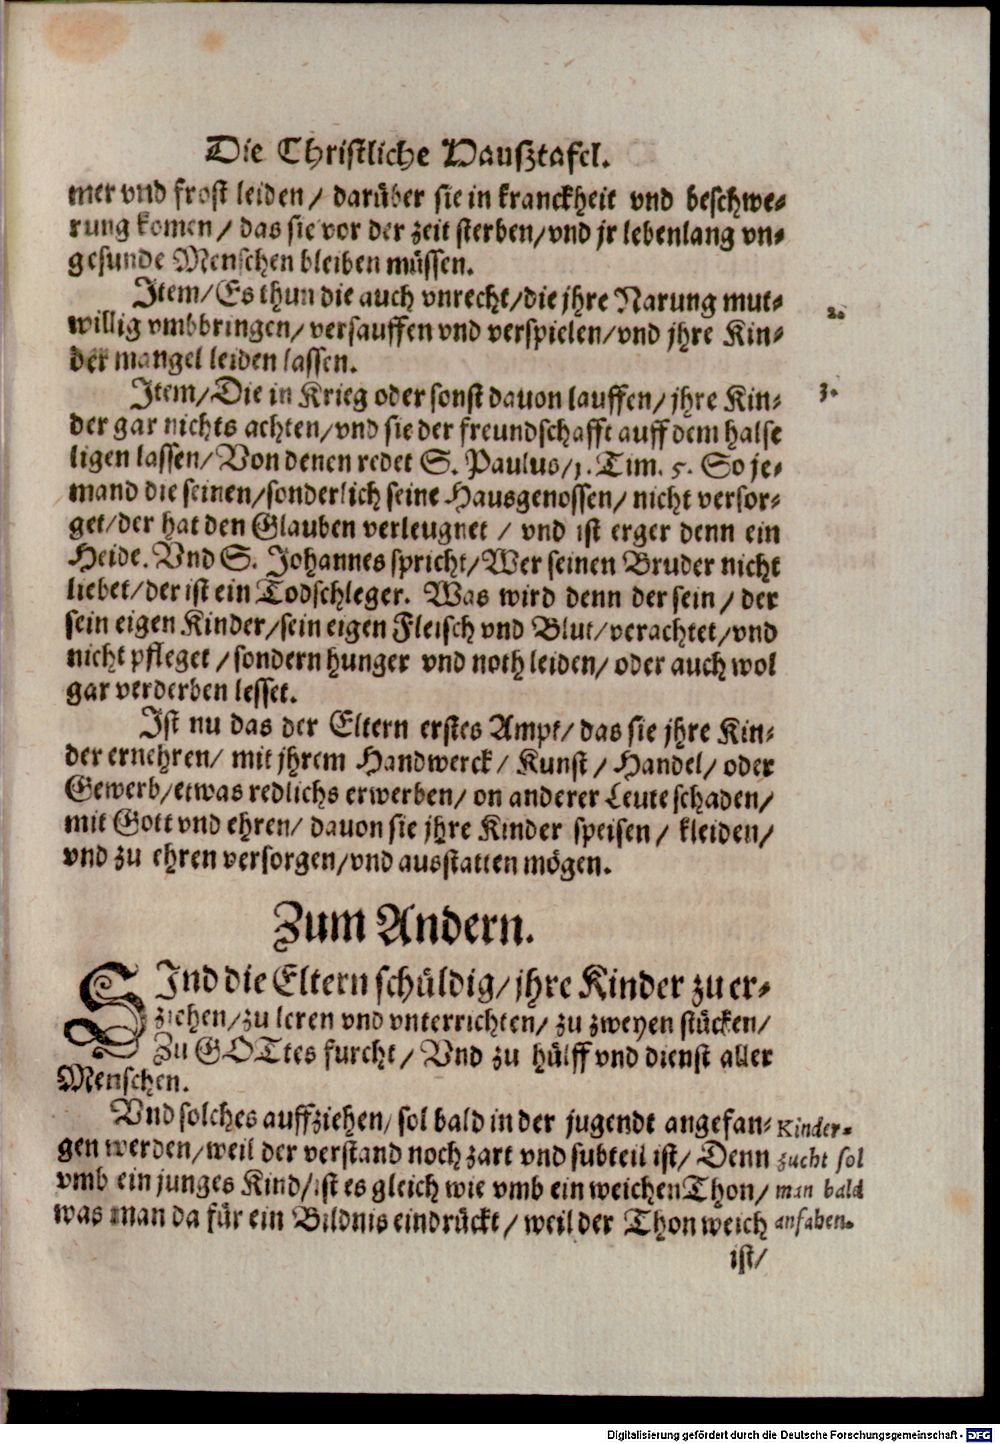 Die Christliche Haußtafel.
mer vnd frost leiden / darüber sie in kranckheit vnd beschwe-
rung komen / das sie vor der zeit sterben/vnd jr lebenlang vn-
gesunde Menschen bleiben müssen.
Item/Es thun die auch vnrecht/die jhre Narung mut-
willig vmbbringen/ versauffen vnd verspielen/vnd jhre Kin-
der mangel leiden lassen.
2.
Item/Die in Krieg oder sonst dauon lauffen/ jhre Kin-
der gar nichts achten/vnd sie der freundschafft auff dem halse
ligen lassen/ Von denen redet S. Paulus/1. Tim. 5. So je-
mand die seinen/sonderlich seine Hausgenossen/ nicht versor-
get/der hat den Glauben verleugnet / vnd ist erger denn ein
Heide. Vnd S. Johannes spricht/Wer seinen Bruder nicht
liebet/der ist ein Todschleger. Was wird denn der sein / der
sein eigen Kinder/sein eigen Fleisch vnd Blut/verachtet/vnd
nicht pfleget / sondern hunger vnd noth leiden/ oder auch wol
gar verderben lesset.
3.
Ist nu das der Eltern erstes Ampt/ das sie jhre Kin-
der ernehren/ mit jhrem Handwerck/ Kunst / Handel/ oder
Gewerb/etwas redlichs erwerben/ on anderer Leute schaden/
mit Gott vnd ehren/ dauon sie jhre Kinder speisen / kleiden/
vnd zu ehren versorgen/vnd ausstatten mögen.
Zum Andern.
SInd die Eltern schüldig/ jhre Kinder zu er-
ziehen/zu leren vnd vnterrichten/ zu zweyen stücken/
Zu GOTtes furcht/ Vnd zu hülff vnd dienst aller
Menschen.
Vnd solches auffziehen/ sol bald in der jugendt angefan-
gen werden/weil der verstand noch zart vnd subteil ist/ Denn
vmb ein junges Kind/ist es gleich wie vmb ein weichen Thon/
was man da für ein Bildnis eindrückt / weil der Thon weich
Kinder-
zucht sol
man bald
anfahen.
ist/
Digitalisierung gefördert durch die Deutsche Forschungsgemeinschaft - DFG